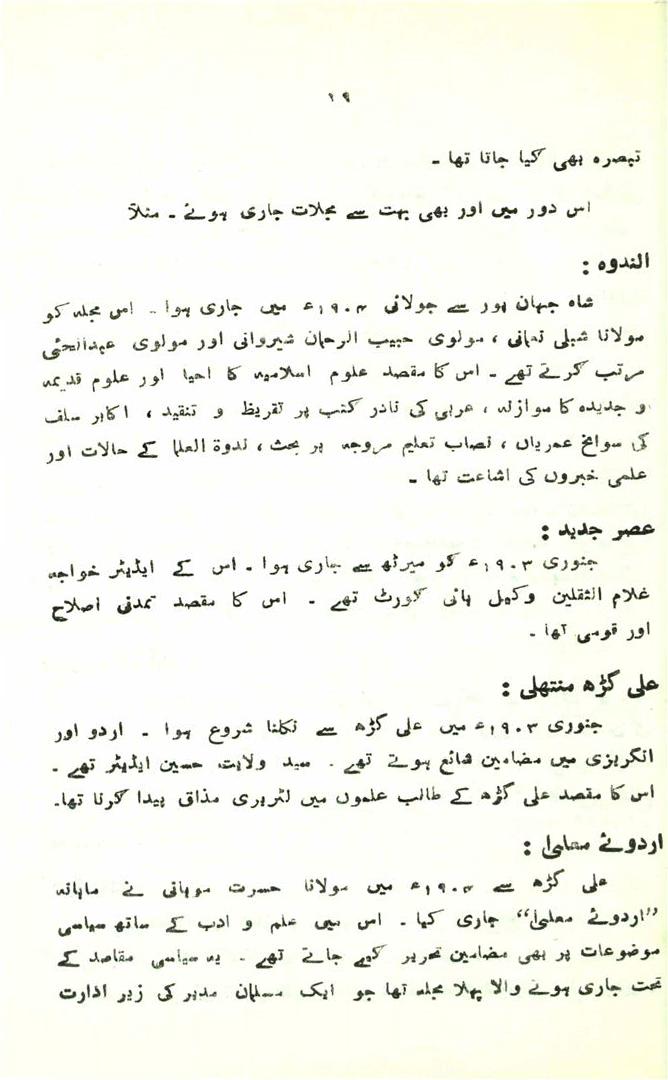 ۱۹
تبصرہ بھی کیا جاتا تھا ۔
اس دور میں اور بھی بہت سے مجلات جاری ہوئے ۔ مثلاً
الندوہ :
شاہ جہان پور سے جولائی ۱۹۰۴ء میں جاری ہوا ۔ اس مجلہ کو
مولانا شبلی نعمانی ، مولوی حبیب الرحمان شیروانی اور مولوی عبدالحئی
مرتب کرتے تھے ۔ اس کا مقصد علوم اسلامیہ کا احیا اور علوم قدیمہ
و جدیدہ کا موازنہ ، عربی کی نادر کتب پر تقریظ و تنقید ، اکابر سلف
کی سوانح عمریاں ، نصاب تعلیم مروجہ پر بحث ، ندوۃ العلما کے حالات اور
علمی خبروں کی اشاعت تھا ۔
عصر جدید :
جنوری ۱۹۰۳ء کو میرٹھ سے جاری ہوا ۔ اس کے ایڈیٹر خواجہ
غلام الثقلین وکیل ہائی کورٹ تھے ۔ اس کا مقصد تمدنی اصلاح
اور قومی تھا ۔
علی گڑھ منتھلی :
جنوری ۱۹۰۳ء میں علی گڑھ سے نکلنا شروع ہوا ۔ اردو اور
انگریزی میں مضامین شائع ہوتے تھے ۔ سید ولایت حسین ایڈیٹر تھے ۔
اس کا مقصد علی گڑھ کے طالب علموں میں لٹریری مذاق پیدا کرنا تھا۔
اردوئے معلیٰ :
علی گڑھ سے ۱۹۰۳ء میں مولانا حسرت موہانی نے ماہانہ
”اردوئے معلیٰ“ جاری کیا ۔ اس میں علم و ادب کے ساتھ سیاسی
موضوعات پر بھی مضامین تحریر کیے جاتے تھے ۔ یہ سیاسی مقاصد کے
تحت جاری ہونے والا پہلا مجلہ تھا جو ایک مسلمان مدیر کی زیر ادارت